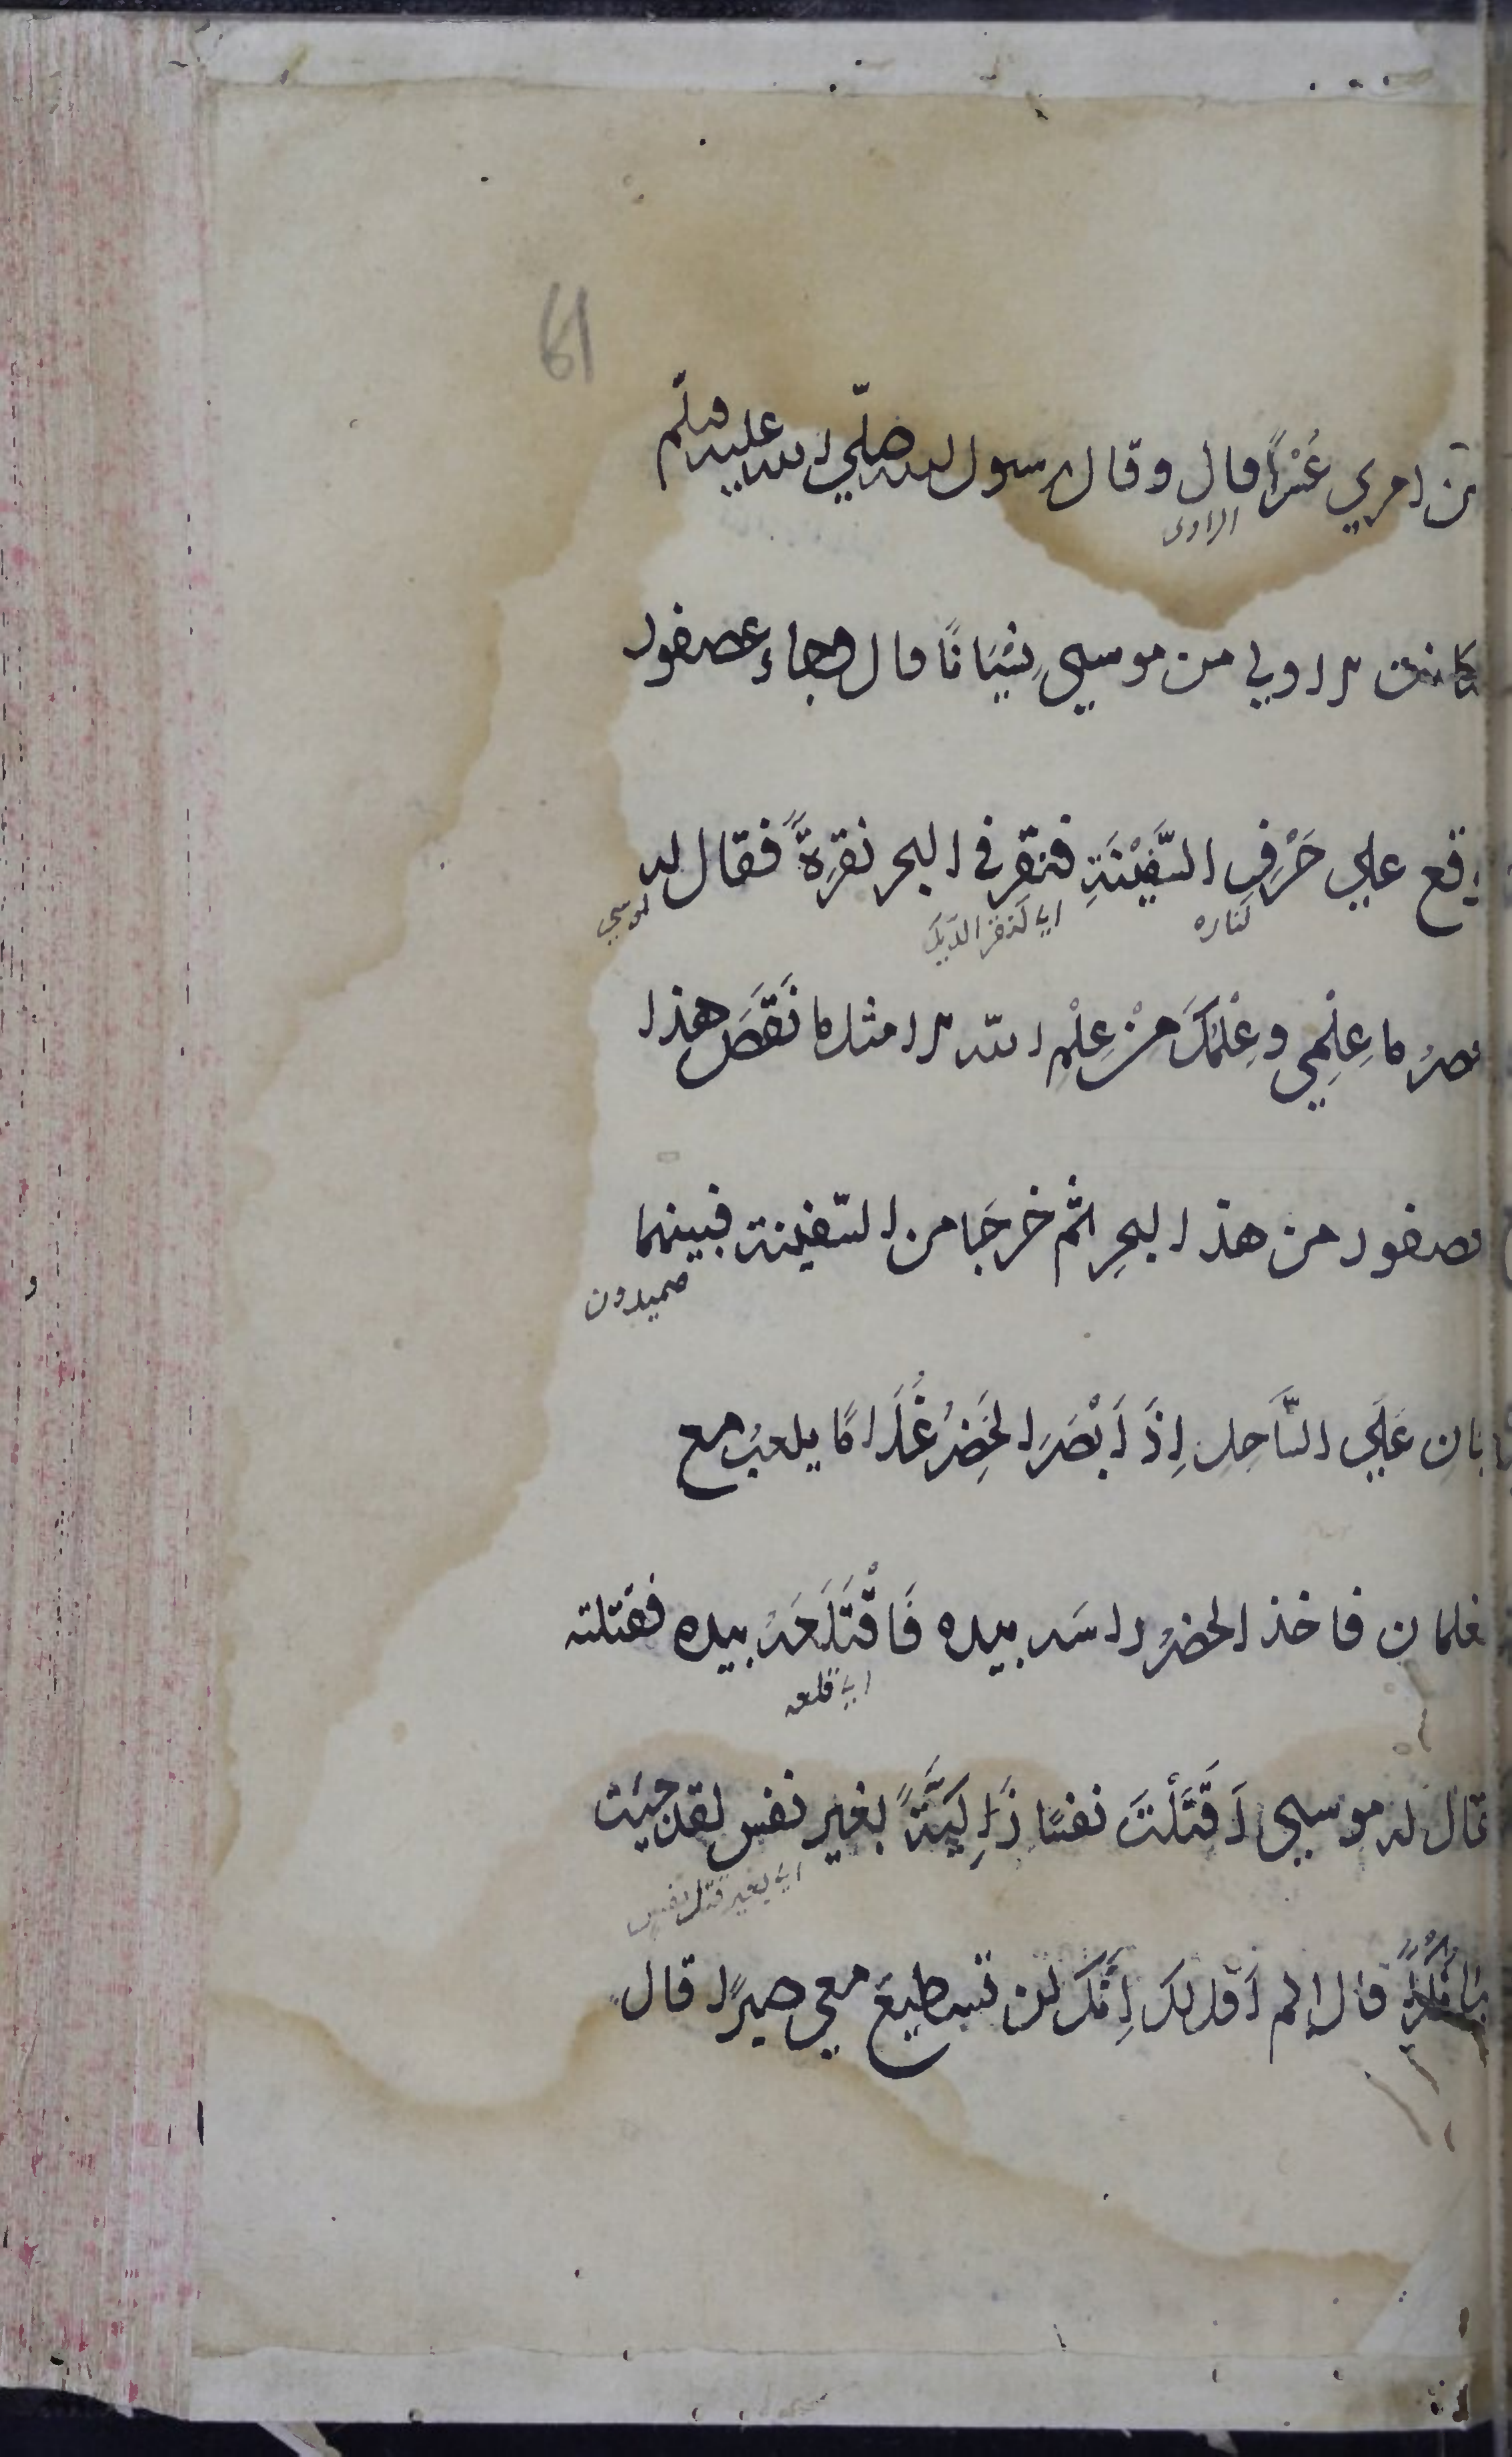 61
من امري عُسْرًا قال وقال رسول الله صلّي الله عليه وسلّم
الراوى
كانت الاولي من موسيٰ نِسْيَانًا قال وجاء عصفور
وقع علي حَرْفِ السَّفِيْنَةِ فنقر في البحر نقرةً فقال له
كناره
اي كنقر الديك
موسي
خضرُ ما عِلْمِي وعِلْمُكَ مِنْ عِلْمِ الله الا مثل ما نَقَصَ هذا
العصفور من هذا البحرِ ثم خرجَا من السّفينة فبينهما
يمشيان عَلَي السَّاحِلِ اِذْ اَبْصَرَ الخَضِرُ غُلَامًا يلعبُ مع
الغلمان فاخذ الخضرُ راسَه بيده فَاقْتَلَعَهُ بيده فقتلته
اي قلعه
فقال له موسيٰ اَقَتَلْتَ نفسًا زَاكِيَةً بغير نفس لقد جيت
اي بغير قتل نفس
شيئا نُكْرًا قال الم اَقل لك اِنّكَ لن تستطيعَ معي صبرًا قال